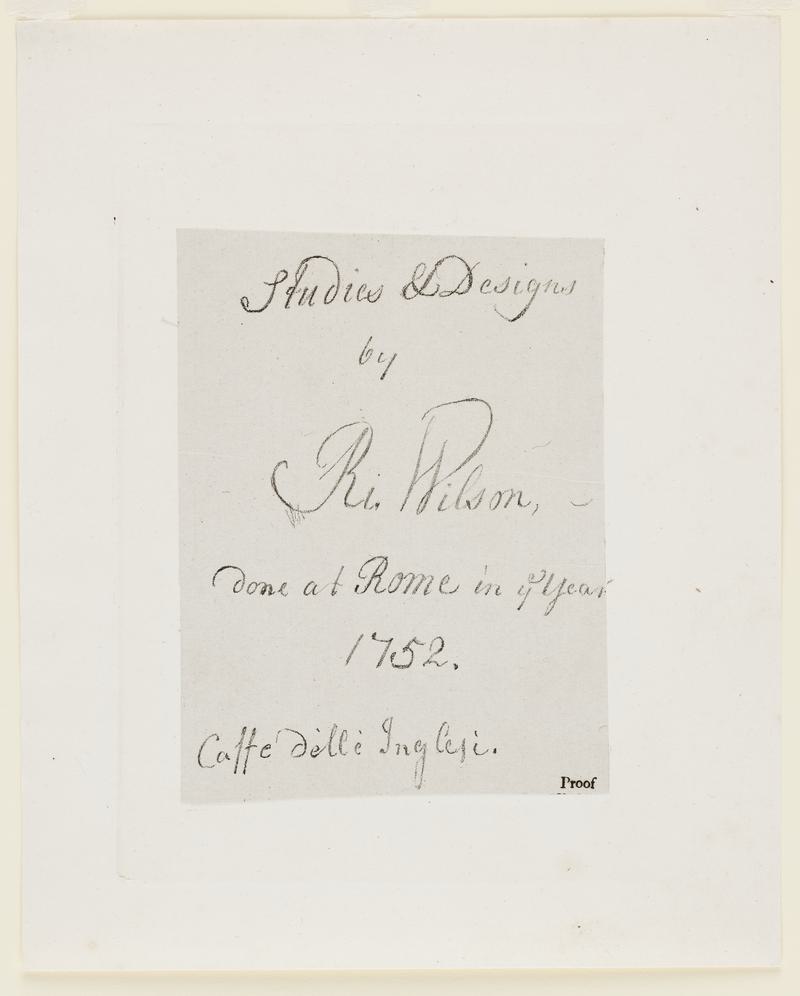 Studies & Designs
by
Ri. Wilson,
done at Rome in yᵉ Year
1752.
Caffè dèllè Inglesi.
Proof